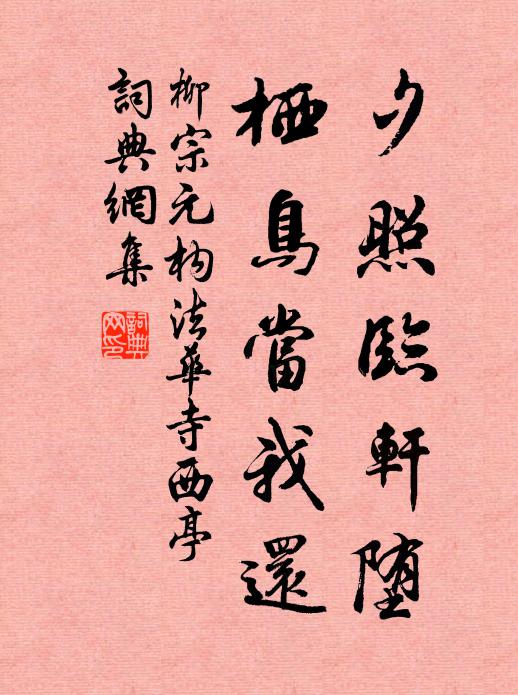 夕照臨軒堕
栖鳥當我還
柳宗元构法華寺西亭
詞典網集
詞典網印